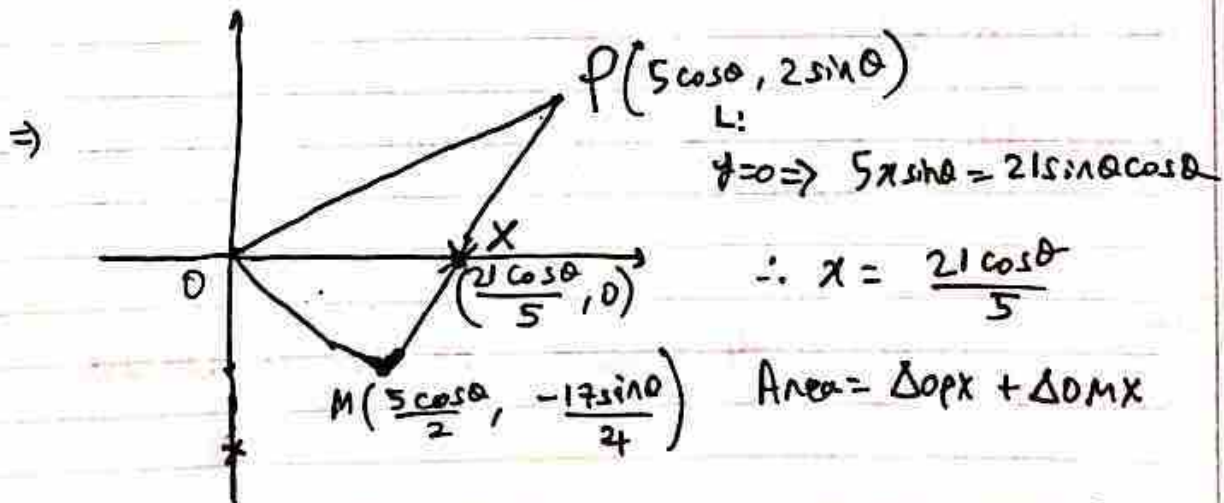 ⇒
P(5cosθ, 2sinθ)
L:
y=0⇒ 5x sinθ = 21sinθcosθ
X
O
(21cosθ/5, 0)
∴ x = 21cosθ/5
M(5cosθ/2, -17sinθ/4)
Area = ΔOPX + ΔOMX